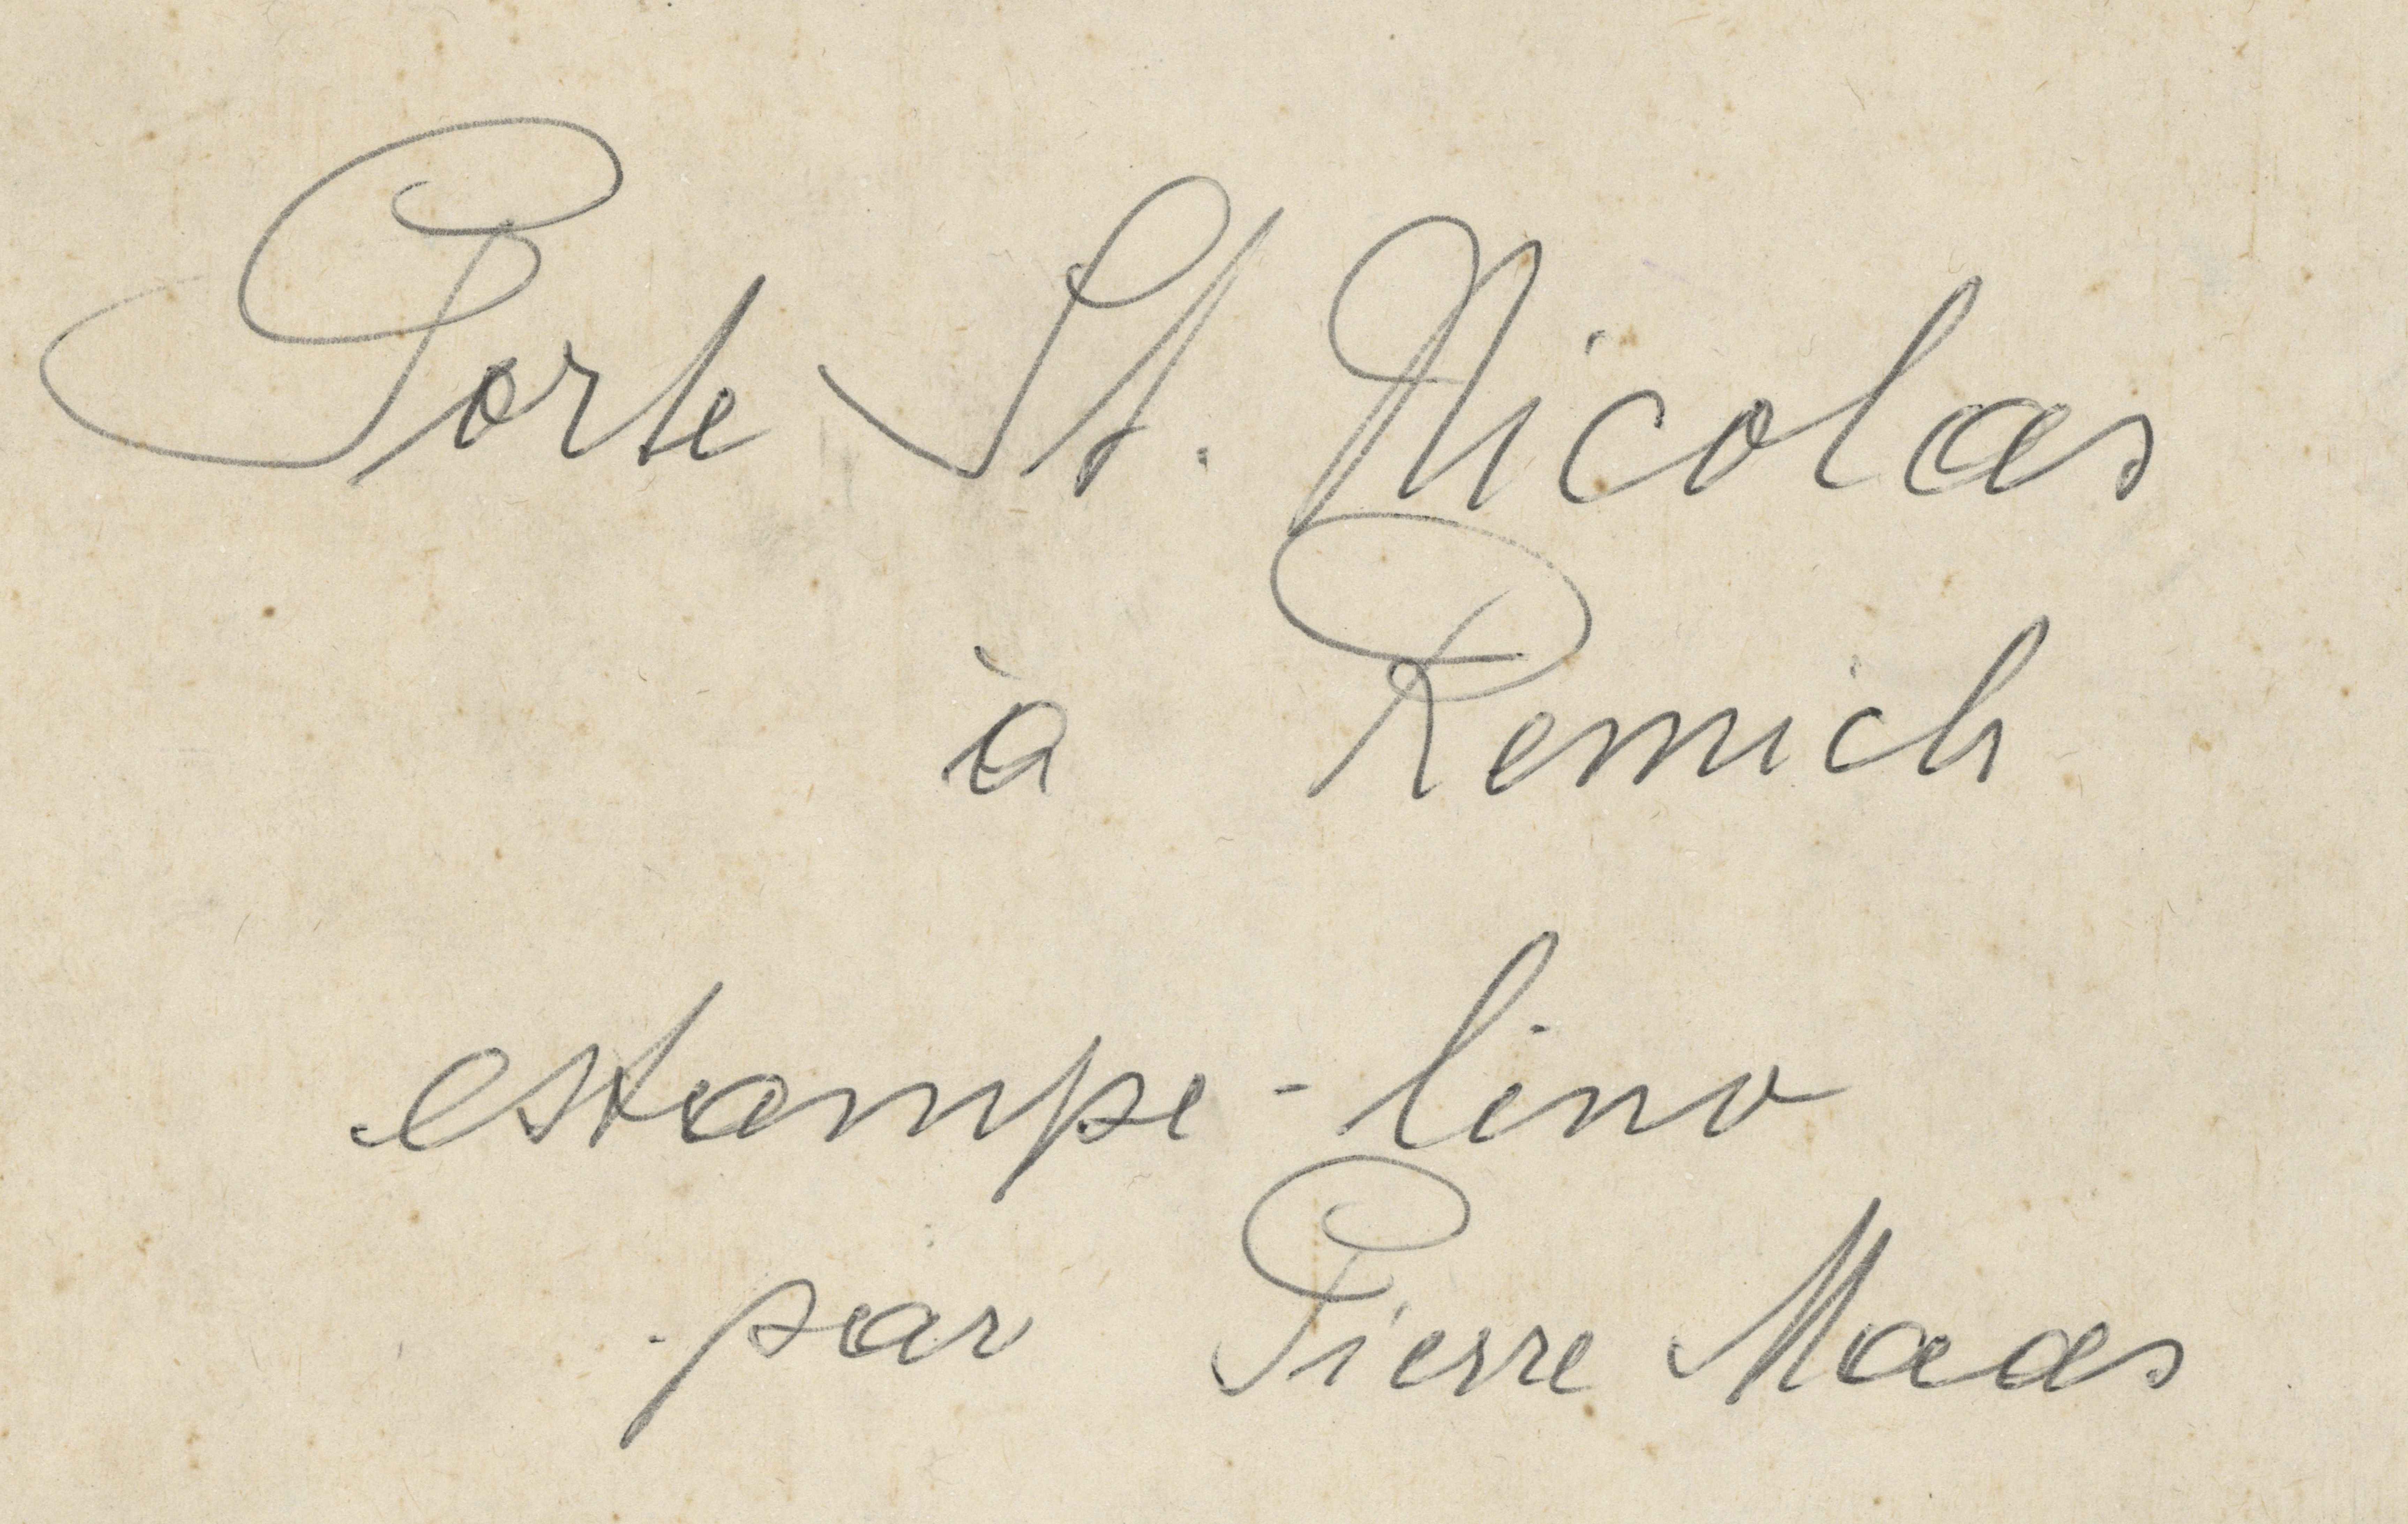 Porte St. Nicolas
à Remich
estampe-lino
par Pierre Maas